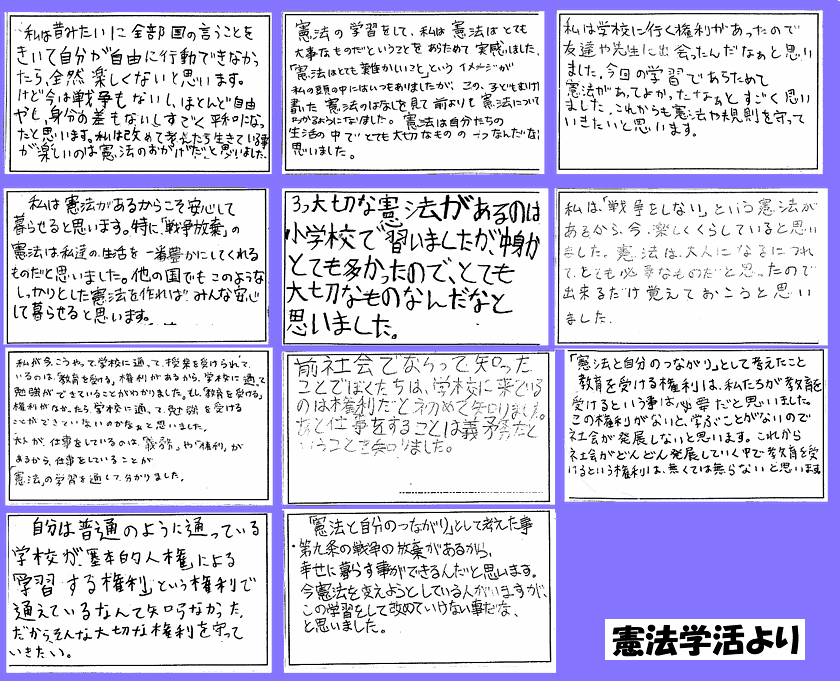 私は昔みたいに全部国の言うことを
きいて自分が自由に行動できなかっ
たら、全然楽しくないと思います。
けど今は戦争もないし、ほとんど自由
やし、身分の差もないしすごく平和になっ
たと思います。私は改めて考えたら生きている事
が楽しいのは憲法のおかげだと思いました。
憲法の学習をして、私は憲法はとても
大事なものだということをあらためて実感しました。
「憲法はとても難かしいこと」というイメージが
私の頭の中にはいつもありましたが、この、子どもむけに
書いた憲法のはなしを見て前よりも憲法について
わかるようになりました。憲法は自分たちの
生活の中でとても大切なものの一つなんだなと
思いました。
私は学校に行く権利があったので
友達や先生に出会ったんだなぁと思い
ました。今回の学習であらためて
憲法があってよかったなぁとすごく思い
ました。これからも憲法や規則を守って
いきたいと思います。
私は憲法があるからこそ安心して
暮らせると思います。特に「戦争放棄」の
憲法は私達の生活を一番豊かにしてくれる
ものだと思いました。他の国でもこのような
しっかりとした憲法を作ればみんな安心
して暮らせると思います。
3つ大切な憲法があるのは
小学校で習いましたが、中身が
とても多かったので、とても
大切なものなんだなと
思いました。
私は、「戦争をしない」という憲法が
あるから、今、楽しくくらしていると思い
ました。憲法は、大人になるにつれ
て、とても必要なものだと思ったので
出来るだけ覚えておこうと思い
ました。
私が今、こうやって、学校に通って、授業を受けられて
いるのは、「教育を受ける」権利があるから、学校に通って
勉強ができていることがわかりました。もし「教育を受ける」
権利がなかったら、学校に通って、勉強を受ける
ことができていないのかなぁと思いました。
大人が、仕事をしているのは、「義務」や「権利」が
あるから、仕事をしていることが
「憲法」の学習を通して、分かりました。
前社会でならって知った
ことでぼくたちは、学校に来ている
のは権利だと初めて知りました。
あと仕事をすることは義務だと
いうことを知りました。
「憲法と自分のつながり」として考えたこと
教育を受ける権利は、私たちが教育を
受けるという事は必要だと思いました。
この権利がないと、学ぶことがないので
社会が発展しないと思います。これから
社会がどんどん発展していく中で教育を受
けるという権利は、無くては無らないと思います
自分は普通のように通っている
学校が、「基本的人権」による
「学習する権利」という権利で
通えているなんて知らなかった。
だからそんな大切な権利を守って
いきたい。
「憲法と自分のつながり」として考えた事
・第九条の戦争の放棄があるから、
幸せに暮らす事ができるんだと思います。
今憲法を変えようとしている人がいますが、
この学習をして改めていけない事だな、
と思いました。
憲法学活より